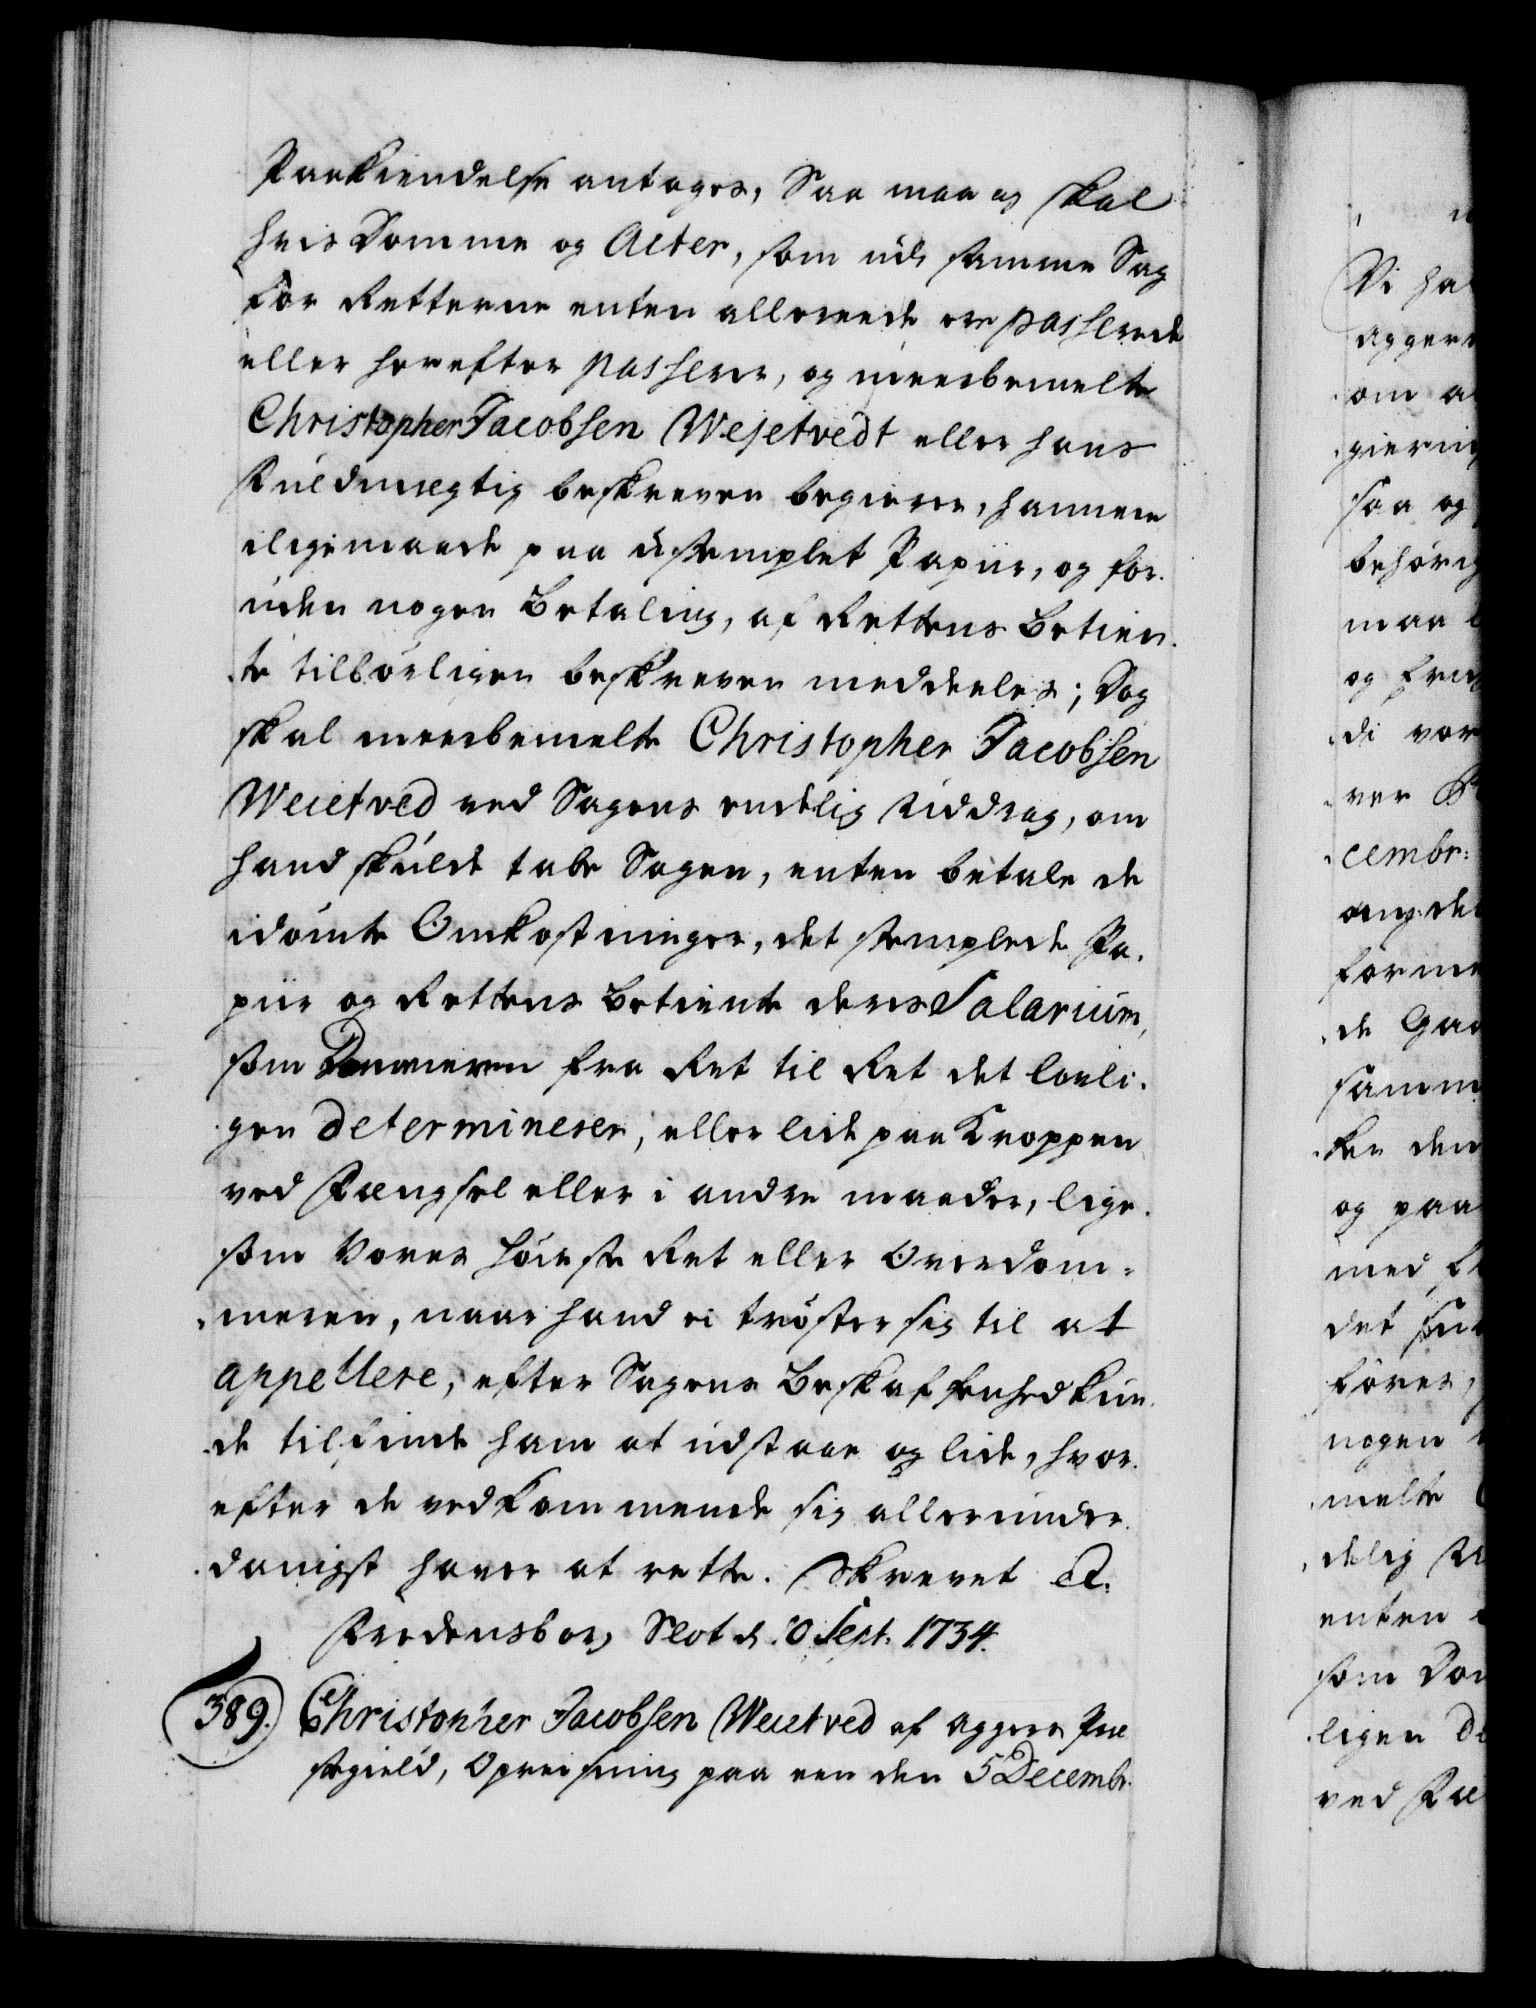 Paakiendelse antages, Saa maa og skal
hvis Domme og Acter, som udi samme Sag
for Retterne enten allereede ere passerede
eller herefter passerer, og meerbemelte
Christopher Jacobsen Wejetvedt eller hans
Fuldmegtig beskreven begierer, hannem
iligemaade paa ustemplet Papiir, og for-
uden nogen Betaling, af Rettens Betien-
te tilbørligen beskreven meddeeles; Dog
skal meerbemelte Christopher Jacobsen
Weietved ved Sagens endelig Uddrag, om
hand skulde tabe Sagen, enten betale de
idømte Omkostninger, det stemplede Pa-
piir og Rettens Betiente deres Salarium,
som Dommeren fra Ret til Ret det lovli-
gen determinerer, eller lide paa Kroppen
ved Fængsel eller i andre maader, lige-
som Vores Høieste Ret eller Overdom-
meren, naar hand ei trøster sig til at
appellere, efter Sagens Beskaffenhed kun-
de tilfinde ham at udstaae og lide, hvor-
efter de vedkommende sig allerunder-
danigst haver at rette. Skrevet &.
Fredensborg Slot d. 10 Sept. 1734.
389. Christopher Jacobsen Weietved af Aggers Præ
stegield, Opreisning paa een den 5 Decembr.
Vi ha
Agger
om a
giering
saa og
behørig
maa
og
di vor
ver
cembr:
ang: de
forme
de Gaa
samm
ker den
og paa
med
det
føres,
nogen
melte
delig
enten
som Do
ligen de
ved Fæ